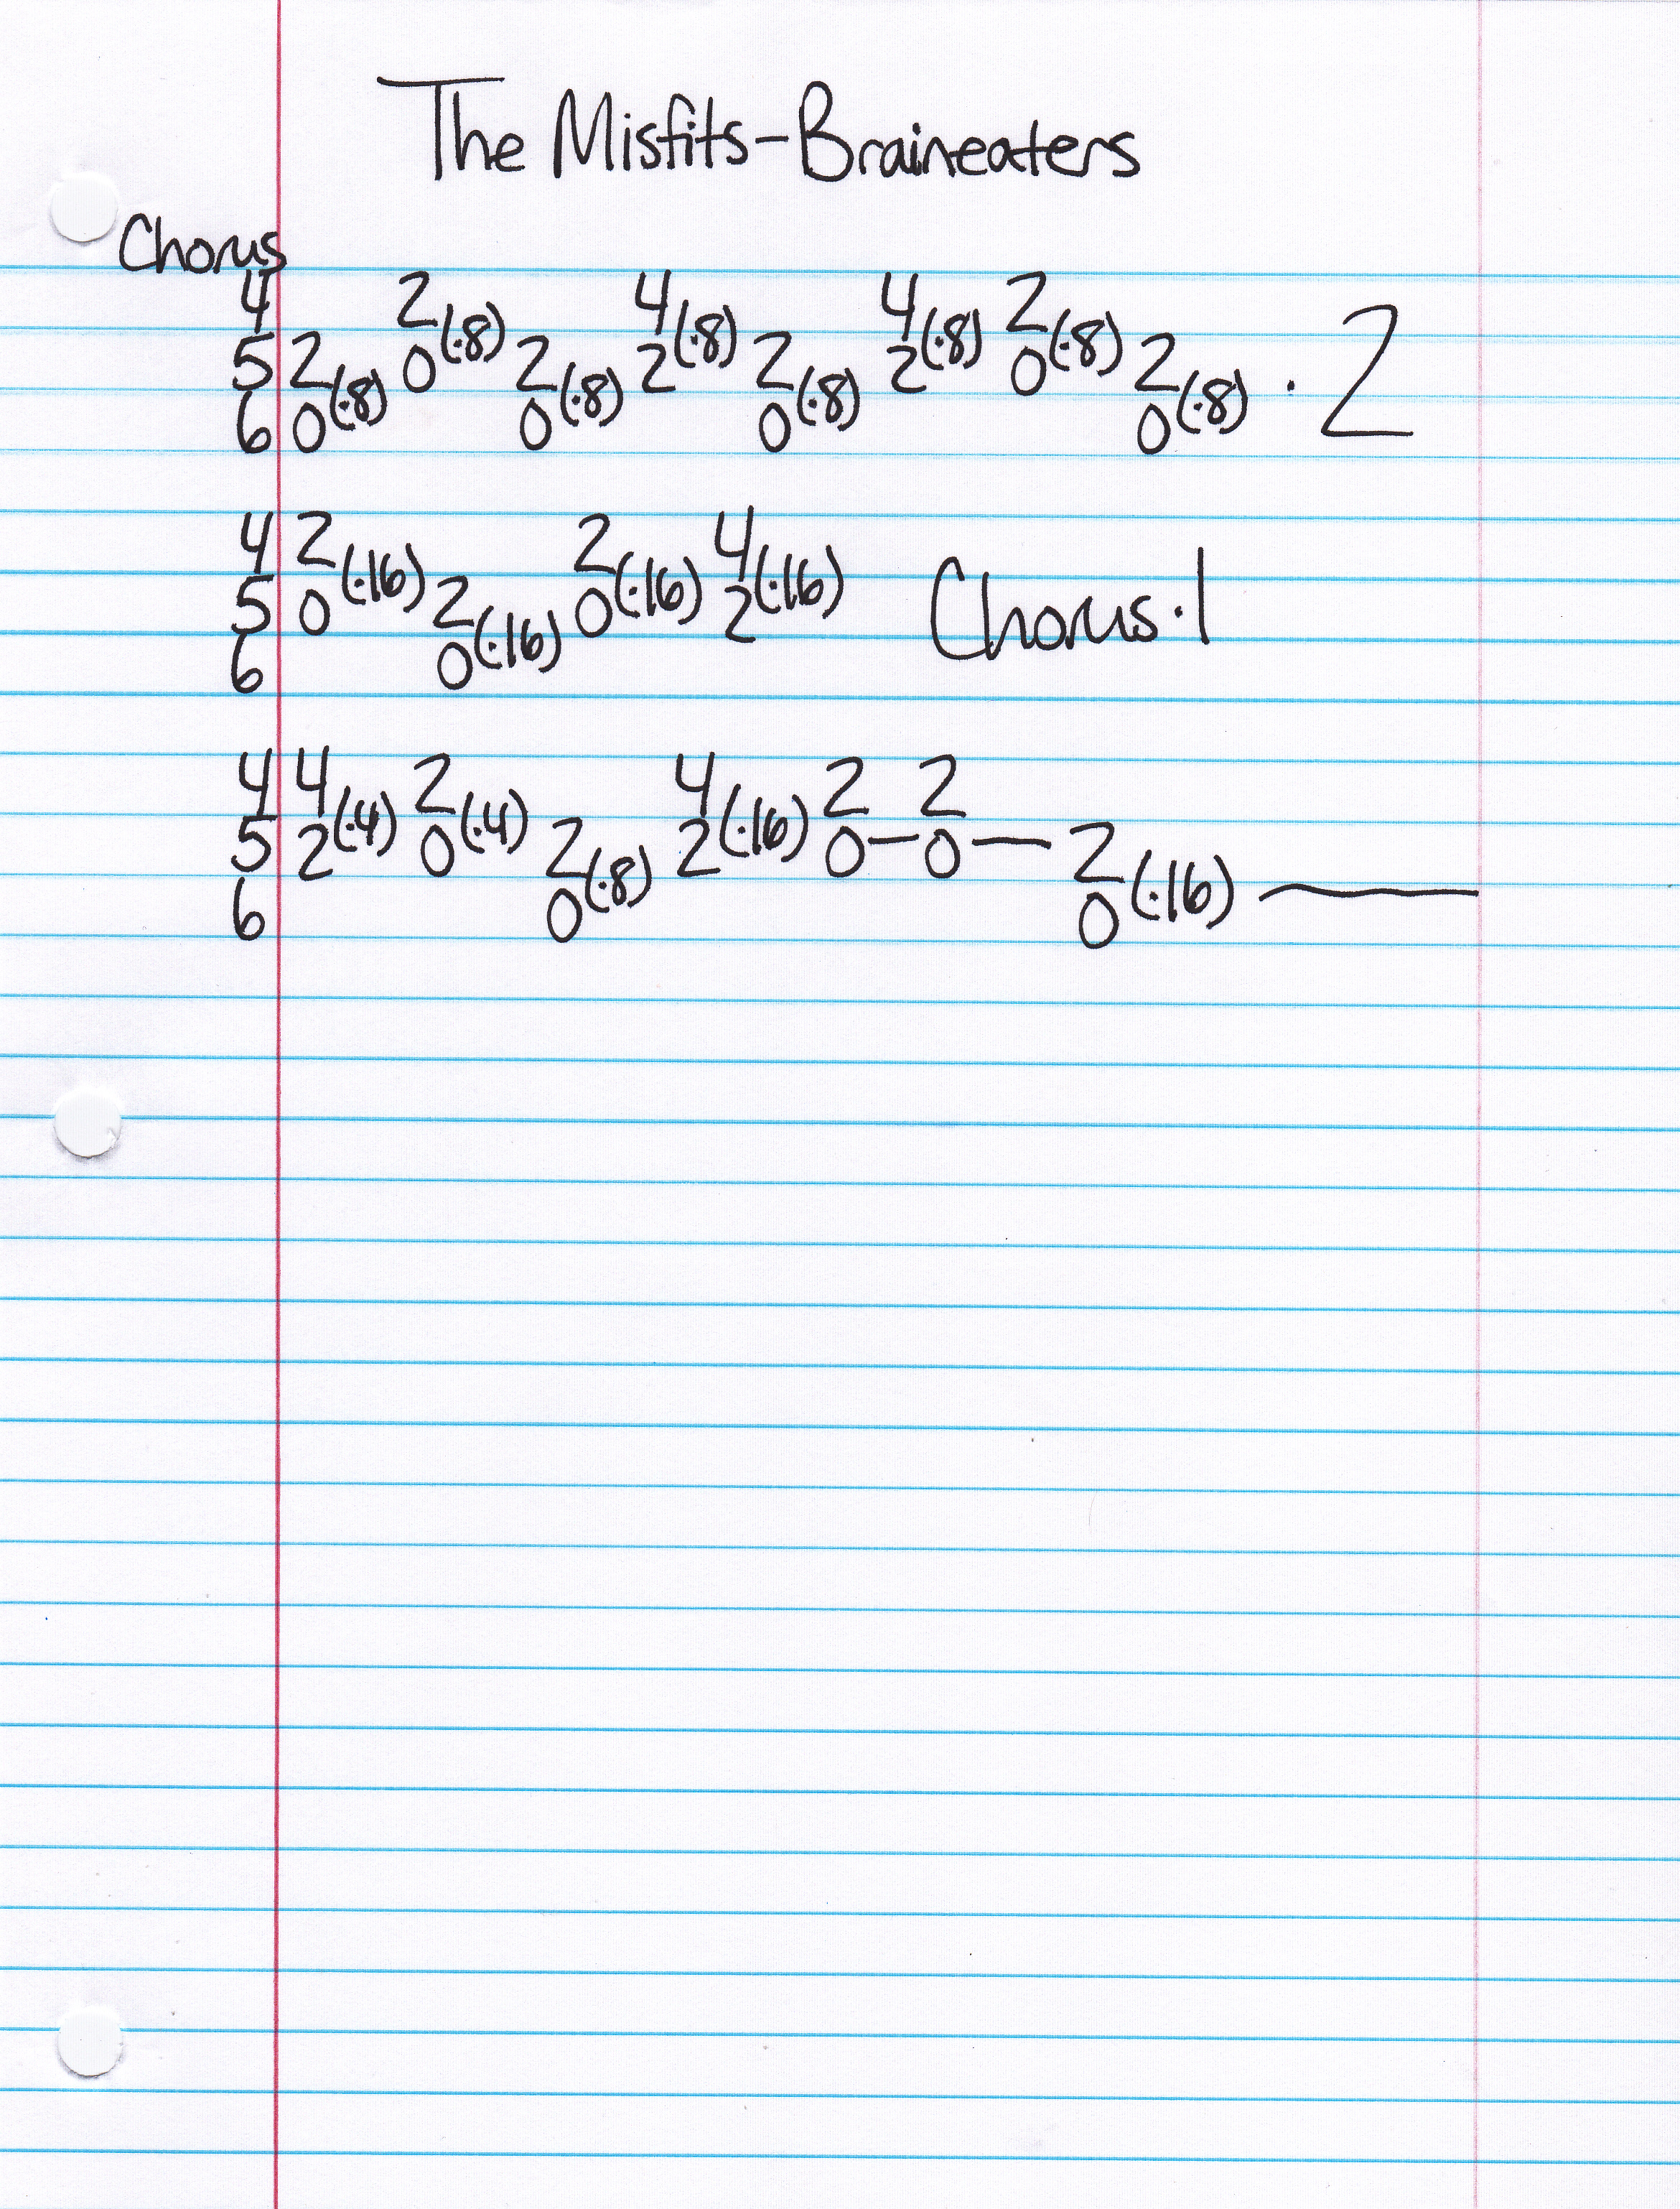 The Misfits-Braineaters
Chorus
4 2(·8) 4(·8) 4(·8) 2(·8)
5 2(·8) 0 2(·8) 2 2(·8) 2 0 2(·8) · 2
6 0 0 0 0
4 2(·16) 2(·16) 4(·16)
5 0 2(·16) 0 2 Chorus·1
6 0
4 4(·4) 2(·4) 4(·16) 2 2
5 2 0 2(·8) 2 0—0— 2(·16)
6 0 0 —